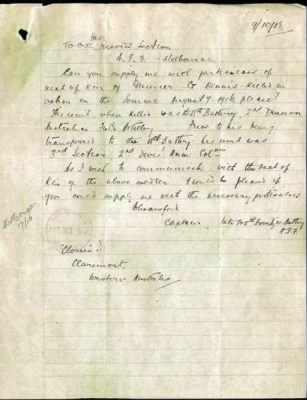 9/10/18
To O.i/c Records Section
A.I.F. Melbourne
Can you supply me with particulars of
next of kin of Gunner C Dennis killed in
action on the Somme August 9 1918 please?
The unit when killed was th Battery, 2nd Division
Australian Field Artillery. Prior to his being
transferred to the th Battery his unit was
2nd Section 2nd Divnl Amm Colmn
As I wish to communicate with the next of
kin of the above mention I would be pleased if
you could supply me with the necessary particulars
Crawford
Captain late 108th Howitzer Battery
A.I.F.
Claremont,
Western Australia